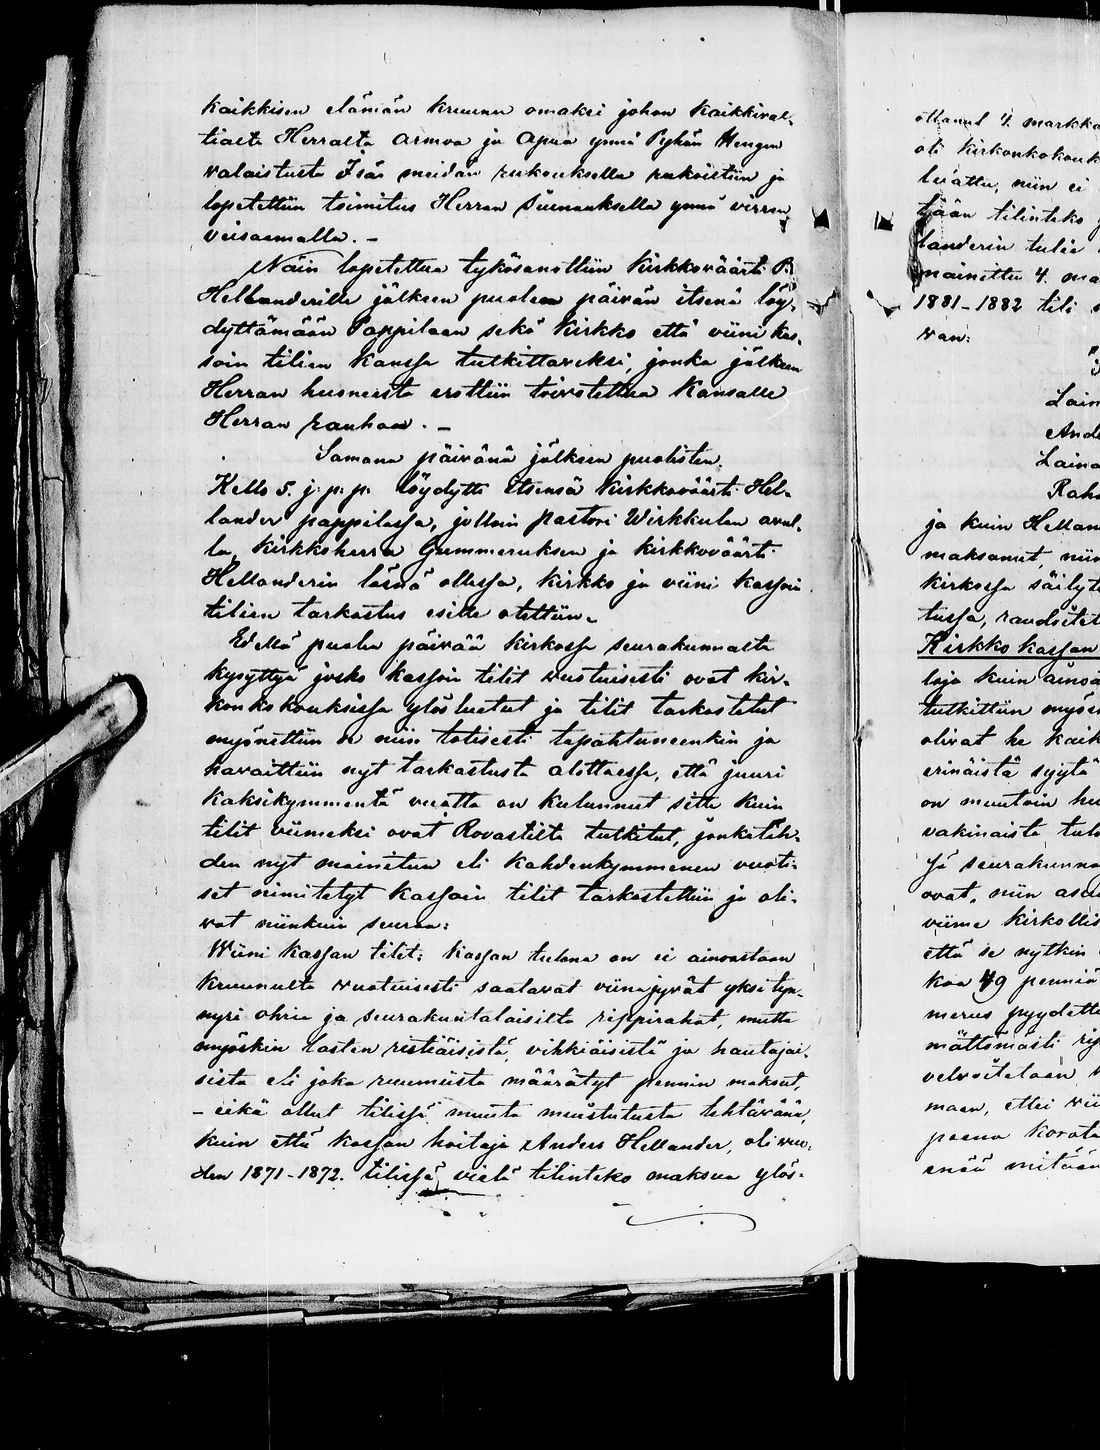 kaikkisen elämän kruunun omaksi johon kaikkival-
tialta Herralta armoa ja apua ynnä Pyhän Hengen
valaistusta Isä meidän rukouksella rukoiltiin ja
lopetettiin toimitus Herran siunauksella ynnä virren
veisaamalla. -
Näin lopetettua tykösanottiin kirkkoväärti P.
Hellanderille jälkeen puolen päivän itsenä löy-
dyttämään Pappilaan sekä kirkko että viini kas-
sain tilien kanssa tutkittaviksi, jonka jälkeen
Herran huoneesta erottiin toivotettua kansalle
Herran rauhaa. -
Samana päivänä jälkeen puolisten.
Kello 5. j. p. p. löydytti itsensä kirkkoväärti Hel-
lander pappilassa, jolloin pastori Wirkkulan avul-
la, kirkkoherra Gummeruksen ja kirkkoväärti
Hellanderin läsnä ollessa, kirkko ja viini kassain
tilien tarkastus esille otettiin.
Edellä puolen päivää kirkossa seurakunnalta
kysyttyä josko kassain tilit vuotuisesti ovat kir-
konkokouksissa ylösluetut ja tilit tarkastetut
myönnettiin se niin totisesti tapahtuneenkin ja
havaittiin nyt tarkastusta alottaessa, että juuri
kaksikymmentä vuotta on kulunnut siitä kuin
tilit viimeksi ovat Rovastilta tutkitut, jonkatäh-
den nyt mainitun eli kahdenkymmenen vuoti-
set nimitetyt kassain tilit tarkastettiin ja oli-
vat niinkuin seuraa:
Wiini kassan tilit: kassan tulona on ei ainoastaan
kruunulta vuotuisesti saatavat viinajyvät yksi tyn-
nyri ohria ja seurakuntalaisilta rippirahat, mutta
myöskin lasten ristiäisistä, vihkiäisistä ja hautajai-
sista eli joka ruumiista määrätyt pennin maksut,
- eikä ollut tilissä muuta muistutusta tehtävänä,
kuin että kassan hoitaja Anders Hellander, oli vuo-
den 1871-1872. tilissä vielä tilinteko maksua ylös-
ottanut 4. markka
oli kirkonkokouk
luettu, niin ei
tään tilinteko
landerin tulee
mainittu 4. ma
1881-1882 tili
van:
Lain
And
Laina
Raha
ja kuin Hellan
maksanut, niin
kirkossa säilyt
tussa,
Kirkko kassan
laja kuin ainoa
tutkittiin myös
olivat he kaik
erinäistä syytä
on muutoin
vakinaista tulo
jä seurakunna
ovat, niin
viime kirkollis
että se nytkin
kaa 49 penniä
merus pyydetty
mättömästi
velvoitetaan
maan, ettei
paena korota
enää mitään